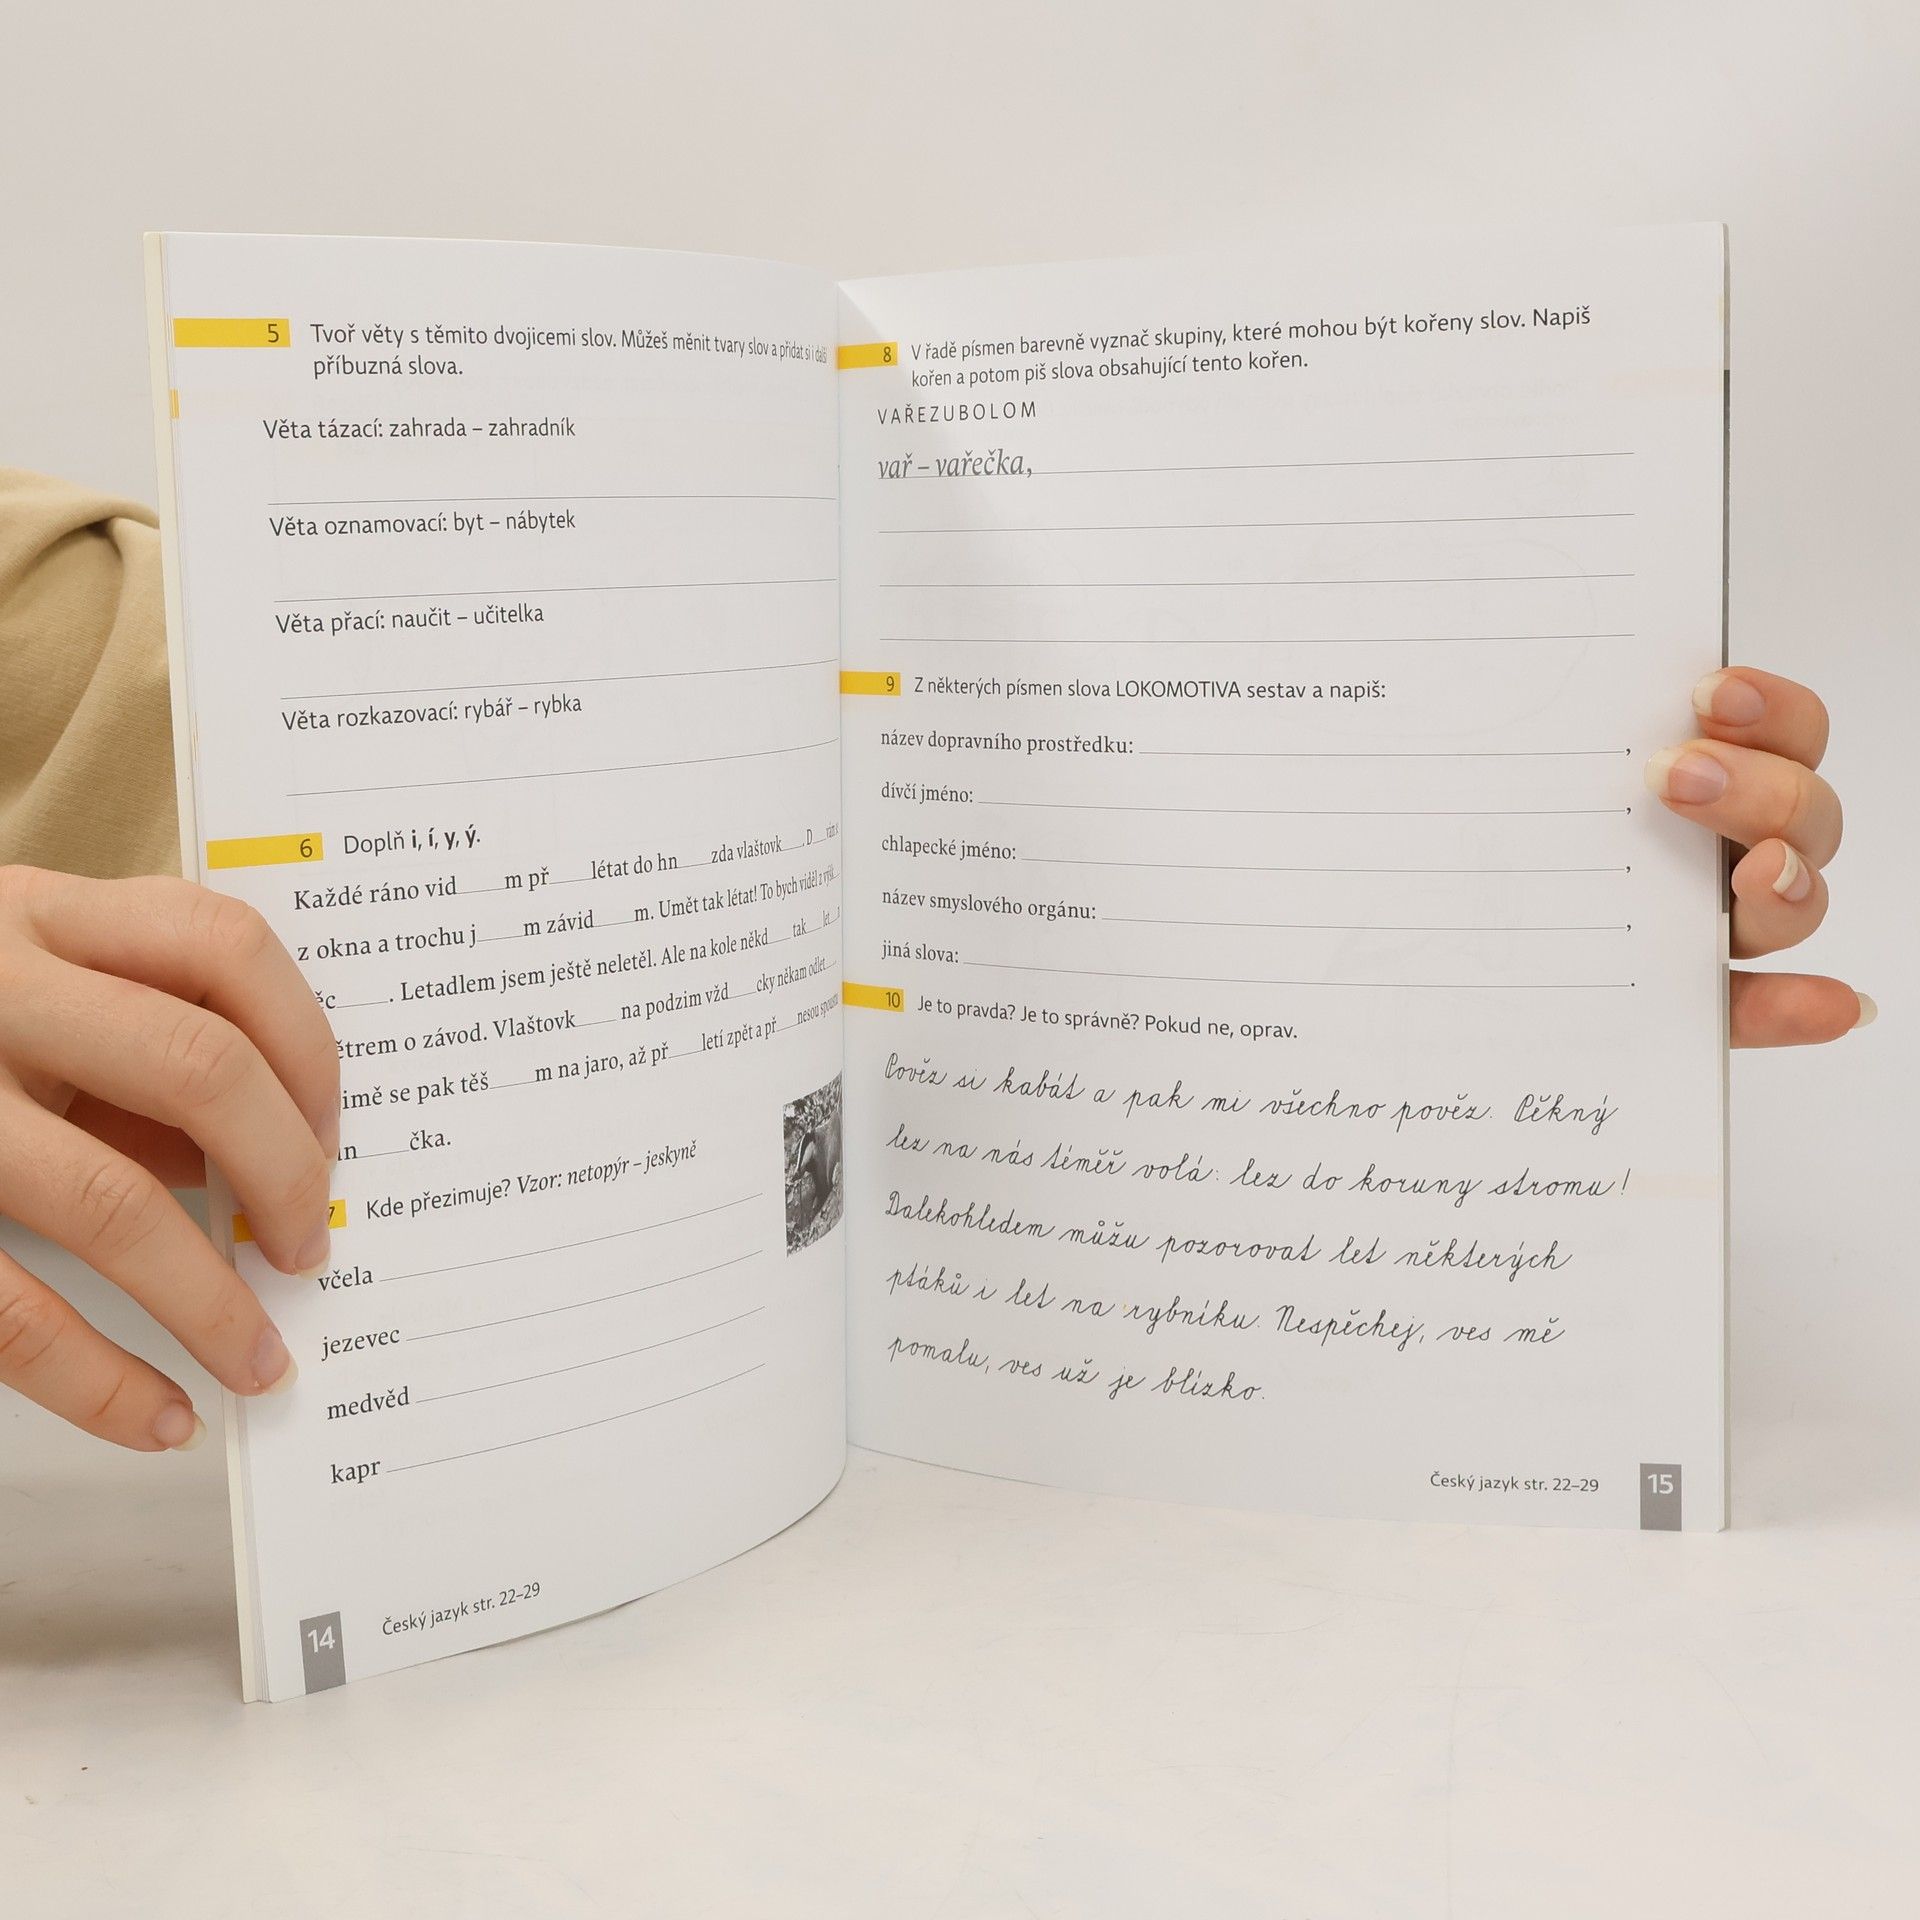 5 Tvoř věty s těmito dvojicemi slov. Můžeš měnit tvary slov a přidat si i další
příbuzná slova.
Věta tázací: zahrada – zahradník
Věta oznamovací: byt – nábytek
Věta přací: naučit – učitelka
Věta rozkazovací: rybář – rybka
6 Doplň i, í, y, ý.
Každé ráno vid____m př____létat do hn____zda vlaštovk____. D____vám s
z okna a trochu j____m závid____m. Umět tak létat! To bych viděl z výšk
ěc____. Letadlem jsem ještě neletěl. Ale na kole někd____ tak____ let____
ětrem o závod. Vlaštovk____ na podzim vžd____cky někam odlet____.
imě se pak těš____m na jaro, až př____letí zpět a př____nesou spoustu
in____čka.
7 Kde přezimuje? Vzor: netopýr – jeskyně
včela
jezevec
medvěd
kapr
14 Český jazyk str. 22–29
8 V řadě písmen barevně vyznač skupiny, které mohou být kořeny slov. Napiš
kořen a potom piš slova obsahující tento kořen.
VAŘEZUBOLOM
vař – vařečka,
9 Z některých písmen slova LOKOMOTIVA sestav a napiš:
název dopravního prostředku: ____,
dívčí jméno: ____,
chlapecké jméno: ____,
název smyslového orgánu: ____,
jiná slova: ____.
10 Je to pravda? Je to správně? Pokud ne, oprav.
Pověz si kabát a pak mi všechno pověz. Pěkný
lez na nás téměř volá: lez do koruny stromu!
Dalekohledem můžu pozorovat let některých
ptáků i let na rybníku. Nespěchej, ves mě
pomalu, ves už je blízko.
Český jazyk str. 22–29 15